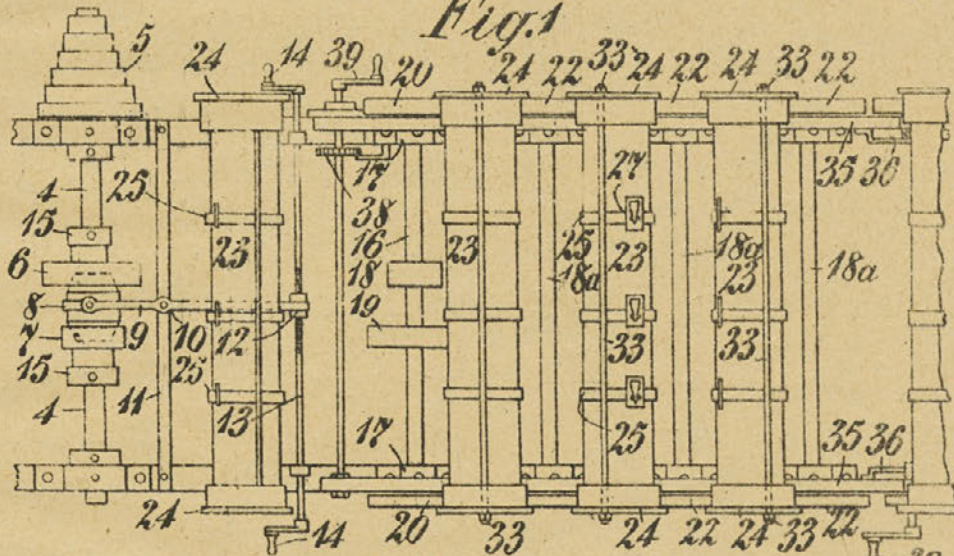 Fig.1
5 24 14 39 20 24 22 33 24 22 24 33 22
4 25 23 38 17 16 23 25 27 23 18a 23 35 36 18a
15
6 18 18a
8 9 10 12 19 33 33
7
15 25 13 25
4 11 17 35 36
24 14 20 33 24 22 24 33 22